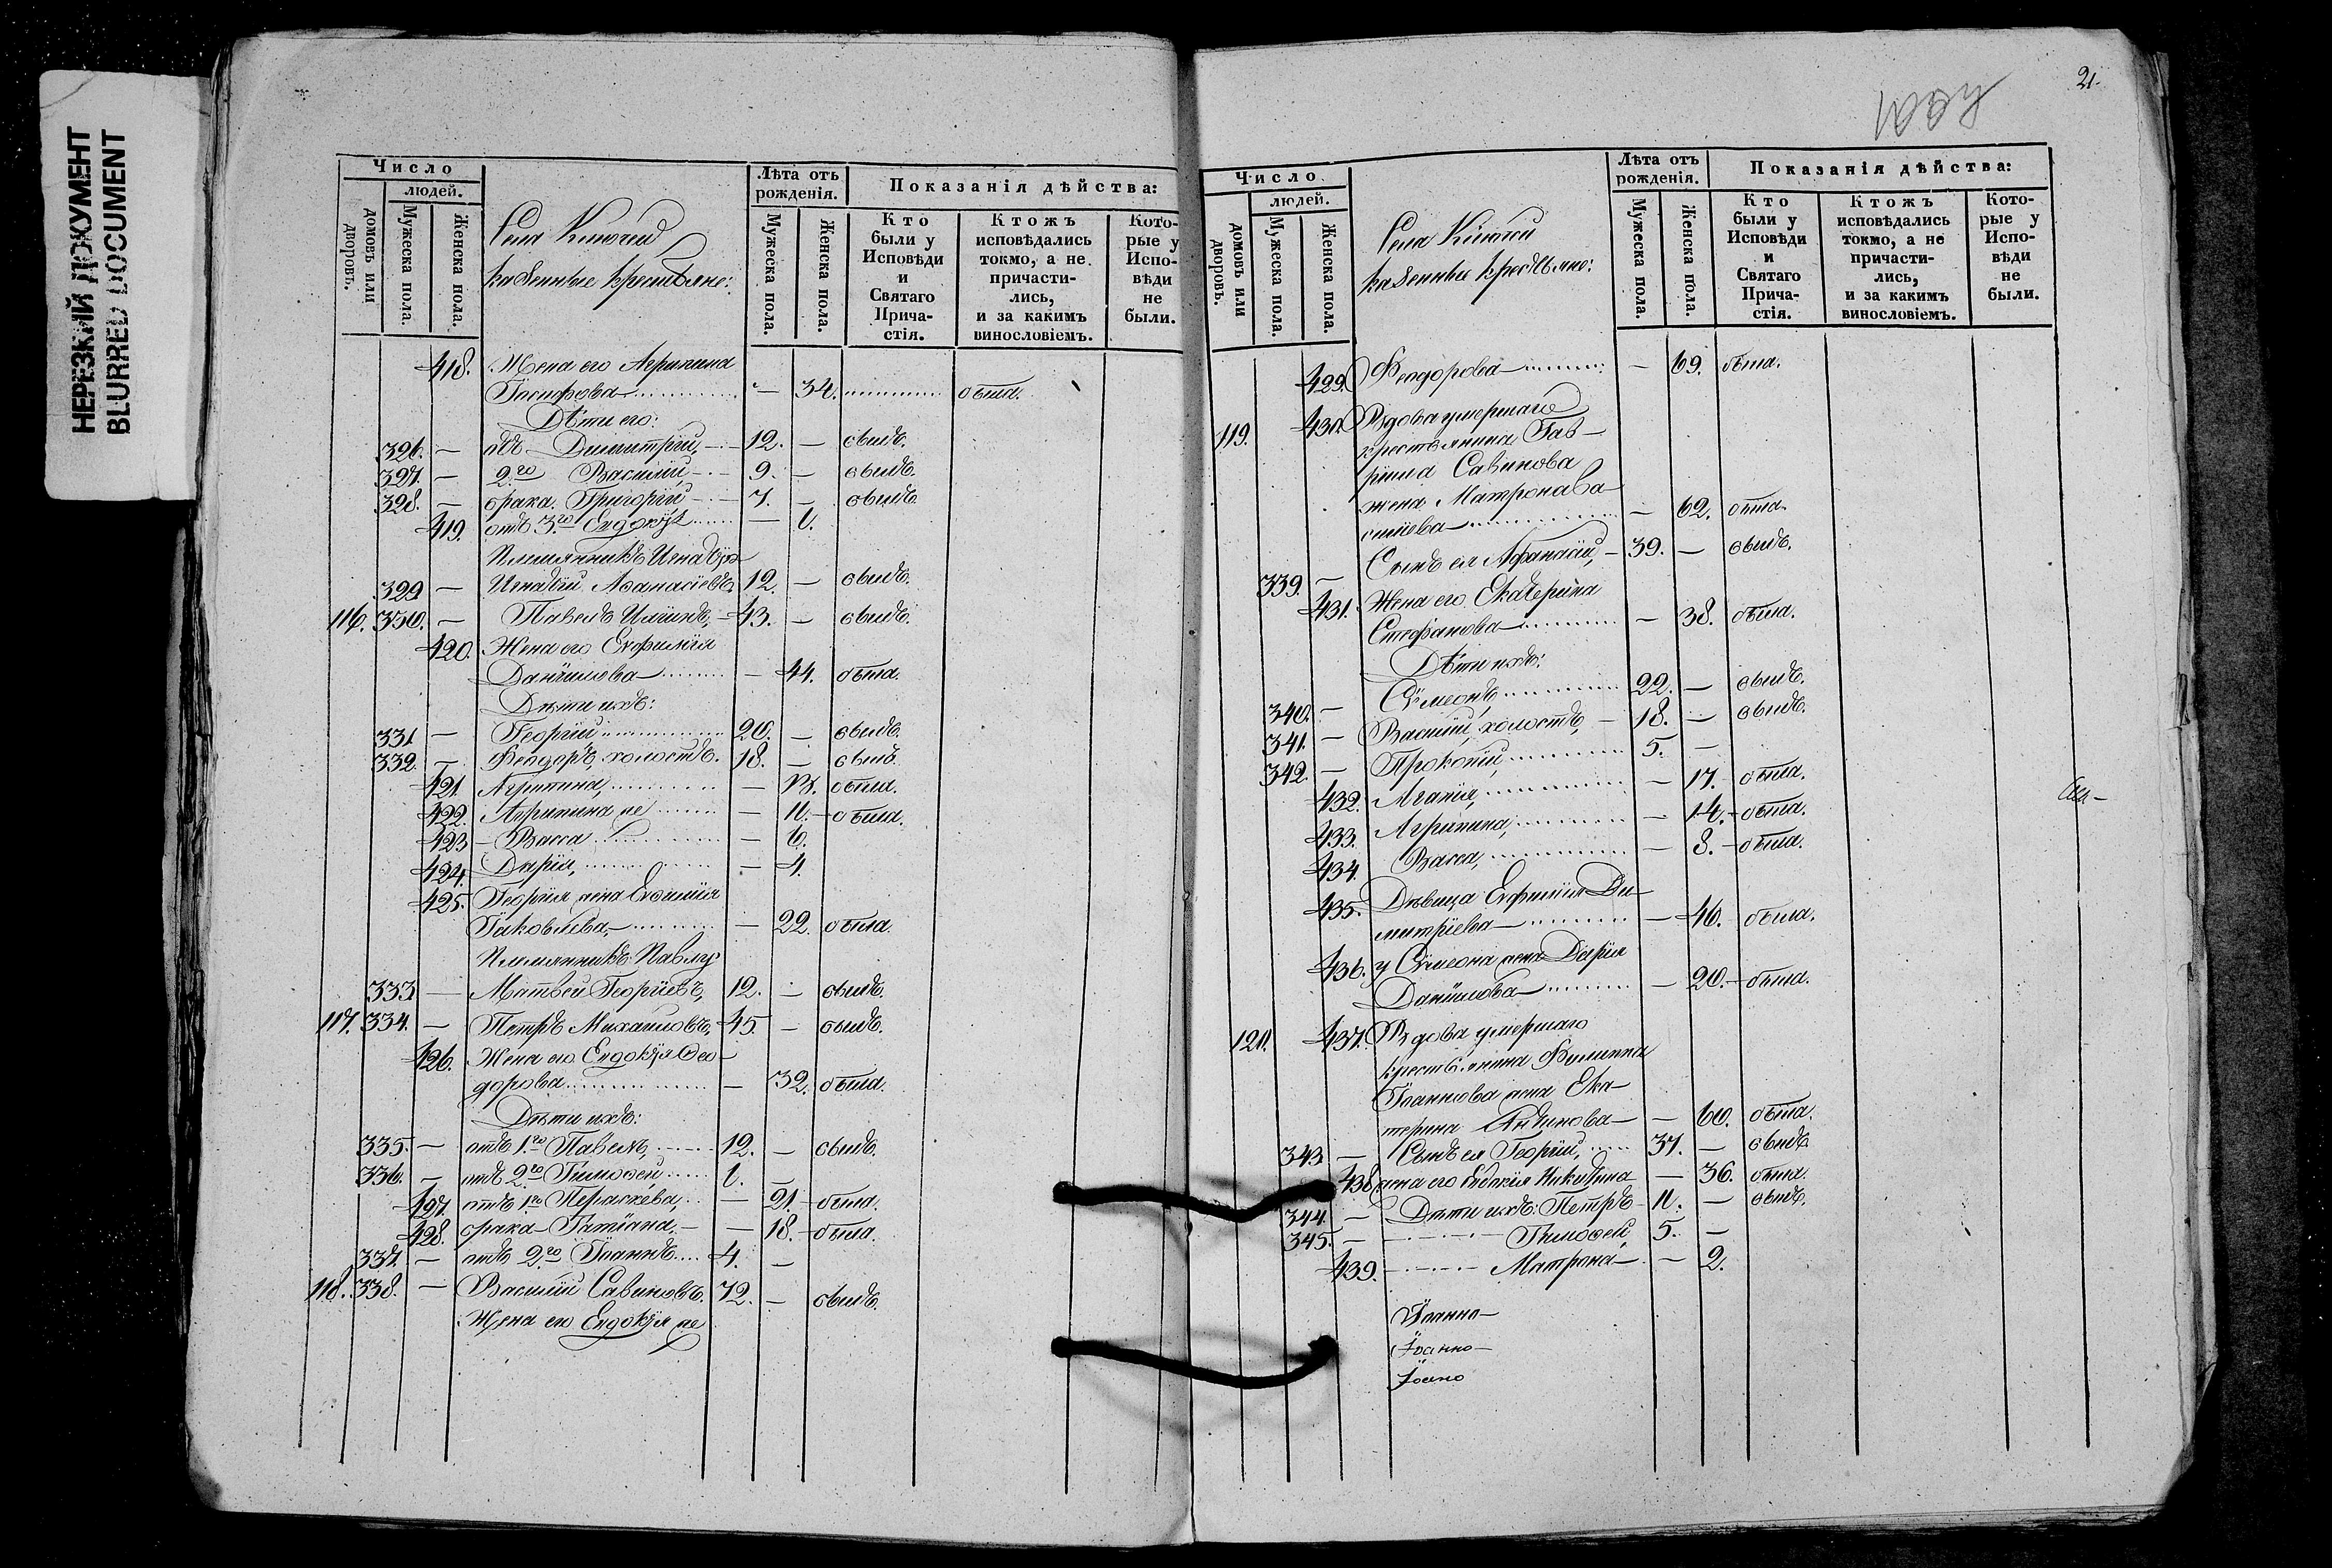 НЕРЕЗКИЙ ДОКУМЕНТ
BLURRED DOCUMENT
Число
людей.
домовъ или дворовъ.
Мужеска пола.
Женска пола.
Села
казенные крестьяне:
Лѣта отъ рожденія.
Мужеска пола.
Женска пола.
Показанія дѣйства:
Кто были у Исповѣди и Святаго Прича-стія.
Ктожъ исповѣдались токмо, а не причасти-лись, и за какимъ винословіемъ.
Кото-рые у Испо-вѣди не были.
418. Жена его Агрипина
Іосифова — 34. была.
Дѣти его:
326. — Димитрій, 12. — былъ.
327. — 2го Василій, 9. — былъ.
328. — брака Григорій 7. — былъ
419. отъ 3го Евдокія — 1.
Племянникъ
329 — Аѳанасіевъ 12. — былъ.
116. 330. — Павелъ 43. — былъ.
420. Жена его Евфимія
Даніилова — 44. была.
Дѣти ихъ:
331 — Георгій 20. — былъ.
332. — Ѳеодоръ, холостъ. 18. — былъ
421. Агрипина, — 13. была.
422. Агрипина же — 11. была.
423 — Васса — 6.
424. Дарія, — 4.
425. Георгія жена Евфимія
Іаковлева, — 22. была.
Племянникъ Павлу
333 — Матвей Георгіевъ, 12. — былъ.
117. 334. — Петръ Михаиловъ, 45 — былъ.
426. Жена его Евдокія Ѳео-
дорова — 32. была.
Дѣти ихъ:
335. — отъ 1го Павелъ, 12. — былъ.
336. — отъ 2го Тимоѳей 1. —
427. отъ 1го Параскева, — 21. была.
428. брака Татіана, — 18. была.
337. — отъ 2го Іоаннъ 4. —
118. 338. — Василій Савиновъ. 72. — былъ.
Жена его Евдокія же
21.
Число
людей.
домовъ или дворовъ.
Мужеска пола.
Женска пола.
Села
казенные крестьяне:
Лѣта отъ рожденія.
Мужеска пола.
Женска пола.
Показанія дѣйства:
Кто были у Исповѣди и Святаго Прича-стія.
Ктожъ исповѣдались токмо, а не причасти-лись, и за какимъ винословіемъ.
Кото-рые у Испо-вѣди не были.
429. Ѳеодорова — 69. была.
119. 430. Вдова умершаго
крестьянина Гав-
риила Савинова
жена Матрона Ва-
сильева — 62. была.
339. — Сынъ ея Афанасій, 39. — былъ.
431. Жена его Екатерина
Стефанова — 38. была.
Дѣти ихъ:
340. — Сѵмеонъ 22. — былъ.
341. — Василій, холостъ, 18. — былъ.
342. — Прокопій, 5. —
432. Агапія, — 17. была.
433. Агрипина, — 14. была.
434. Васса, — 8. была.
435. Дѣвица Евфимія Ди-
митріева — 46. была.
436. у Сѵмеона жена Дарія
Даніилова — 20. была.
120. 437. Вдова умершаго
крестьянина Филиппа
Іоаннова жена Ека-
терина — 60. была.
343 — Сынъ ея Георгій, 37. — былъ
438 жена его Евдокія Никитина — 36. была.
344. — Дѣти ихъ: Петръ 11. — былъ.
345. — Тимоѳей, 5. —
439. Матрона — 2.
Іоанно
Іоанно
Іоано